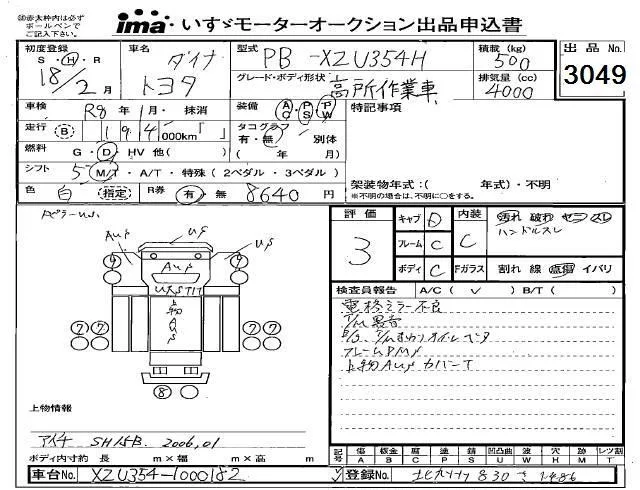 ㊟赤太枠内は必ず
ボールペンで
ご記入下さい。
ima いすゞモーターオークション出品申込書
初度登録 S・H・R 18/2月
車名 ダイナ トヨタ
型式 PB-XZU354H
グレード・ボディ形状 高所作業車
積載(kg) 500
排気量(cc) 4000
出品No. 3049
車検 R8年1月・抹消
装備 AC PS PW
特記事項
走行 B 194,000km「 」
タコグラフ 有・無 別体
( 年 月)
燃料 G・D・HV 他( )
シフト 5 M/T・A/T・特殊(2ペダル・3ペダル)
架装物年式:( 年式)・不明
※不明の場合は、不明に○をする。
色 白 指定 R券 有・無 8640円
評価 3
キャブ D 内装 C 汚れ 破れ ヤニ スレ
ハンドルスレ
フレーム C
ボディ C Fガラス 割れ 線 点傷 イパリ
AUS US US
AUS
④ ④
上物
⑦⑦ ⑦⑦
⑧
検査員報告 A/C( ✓ ) B/T( )
電格ミラー不良
T/M異音
フレームPMS
上物AUS カバーT
上物情報
アイチ SH15B 2006,01
ボディ内寸約 長 m×幅 m×高 m
記号 傷 A 鈑金 B 腐 C 塗 P 錆 S 凹凸曲 U 波 W 穴 H 跡 M レツ割 T
車台No. XZU354-1000182
登録No. 北九州 830 さ 1486